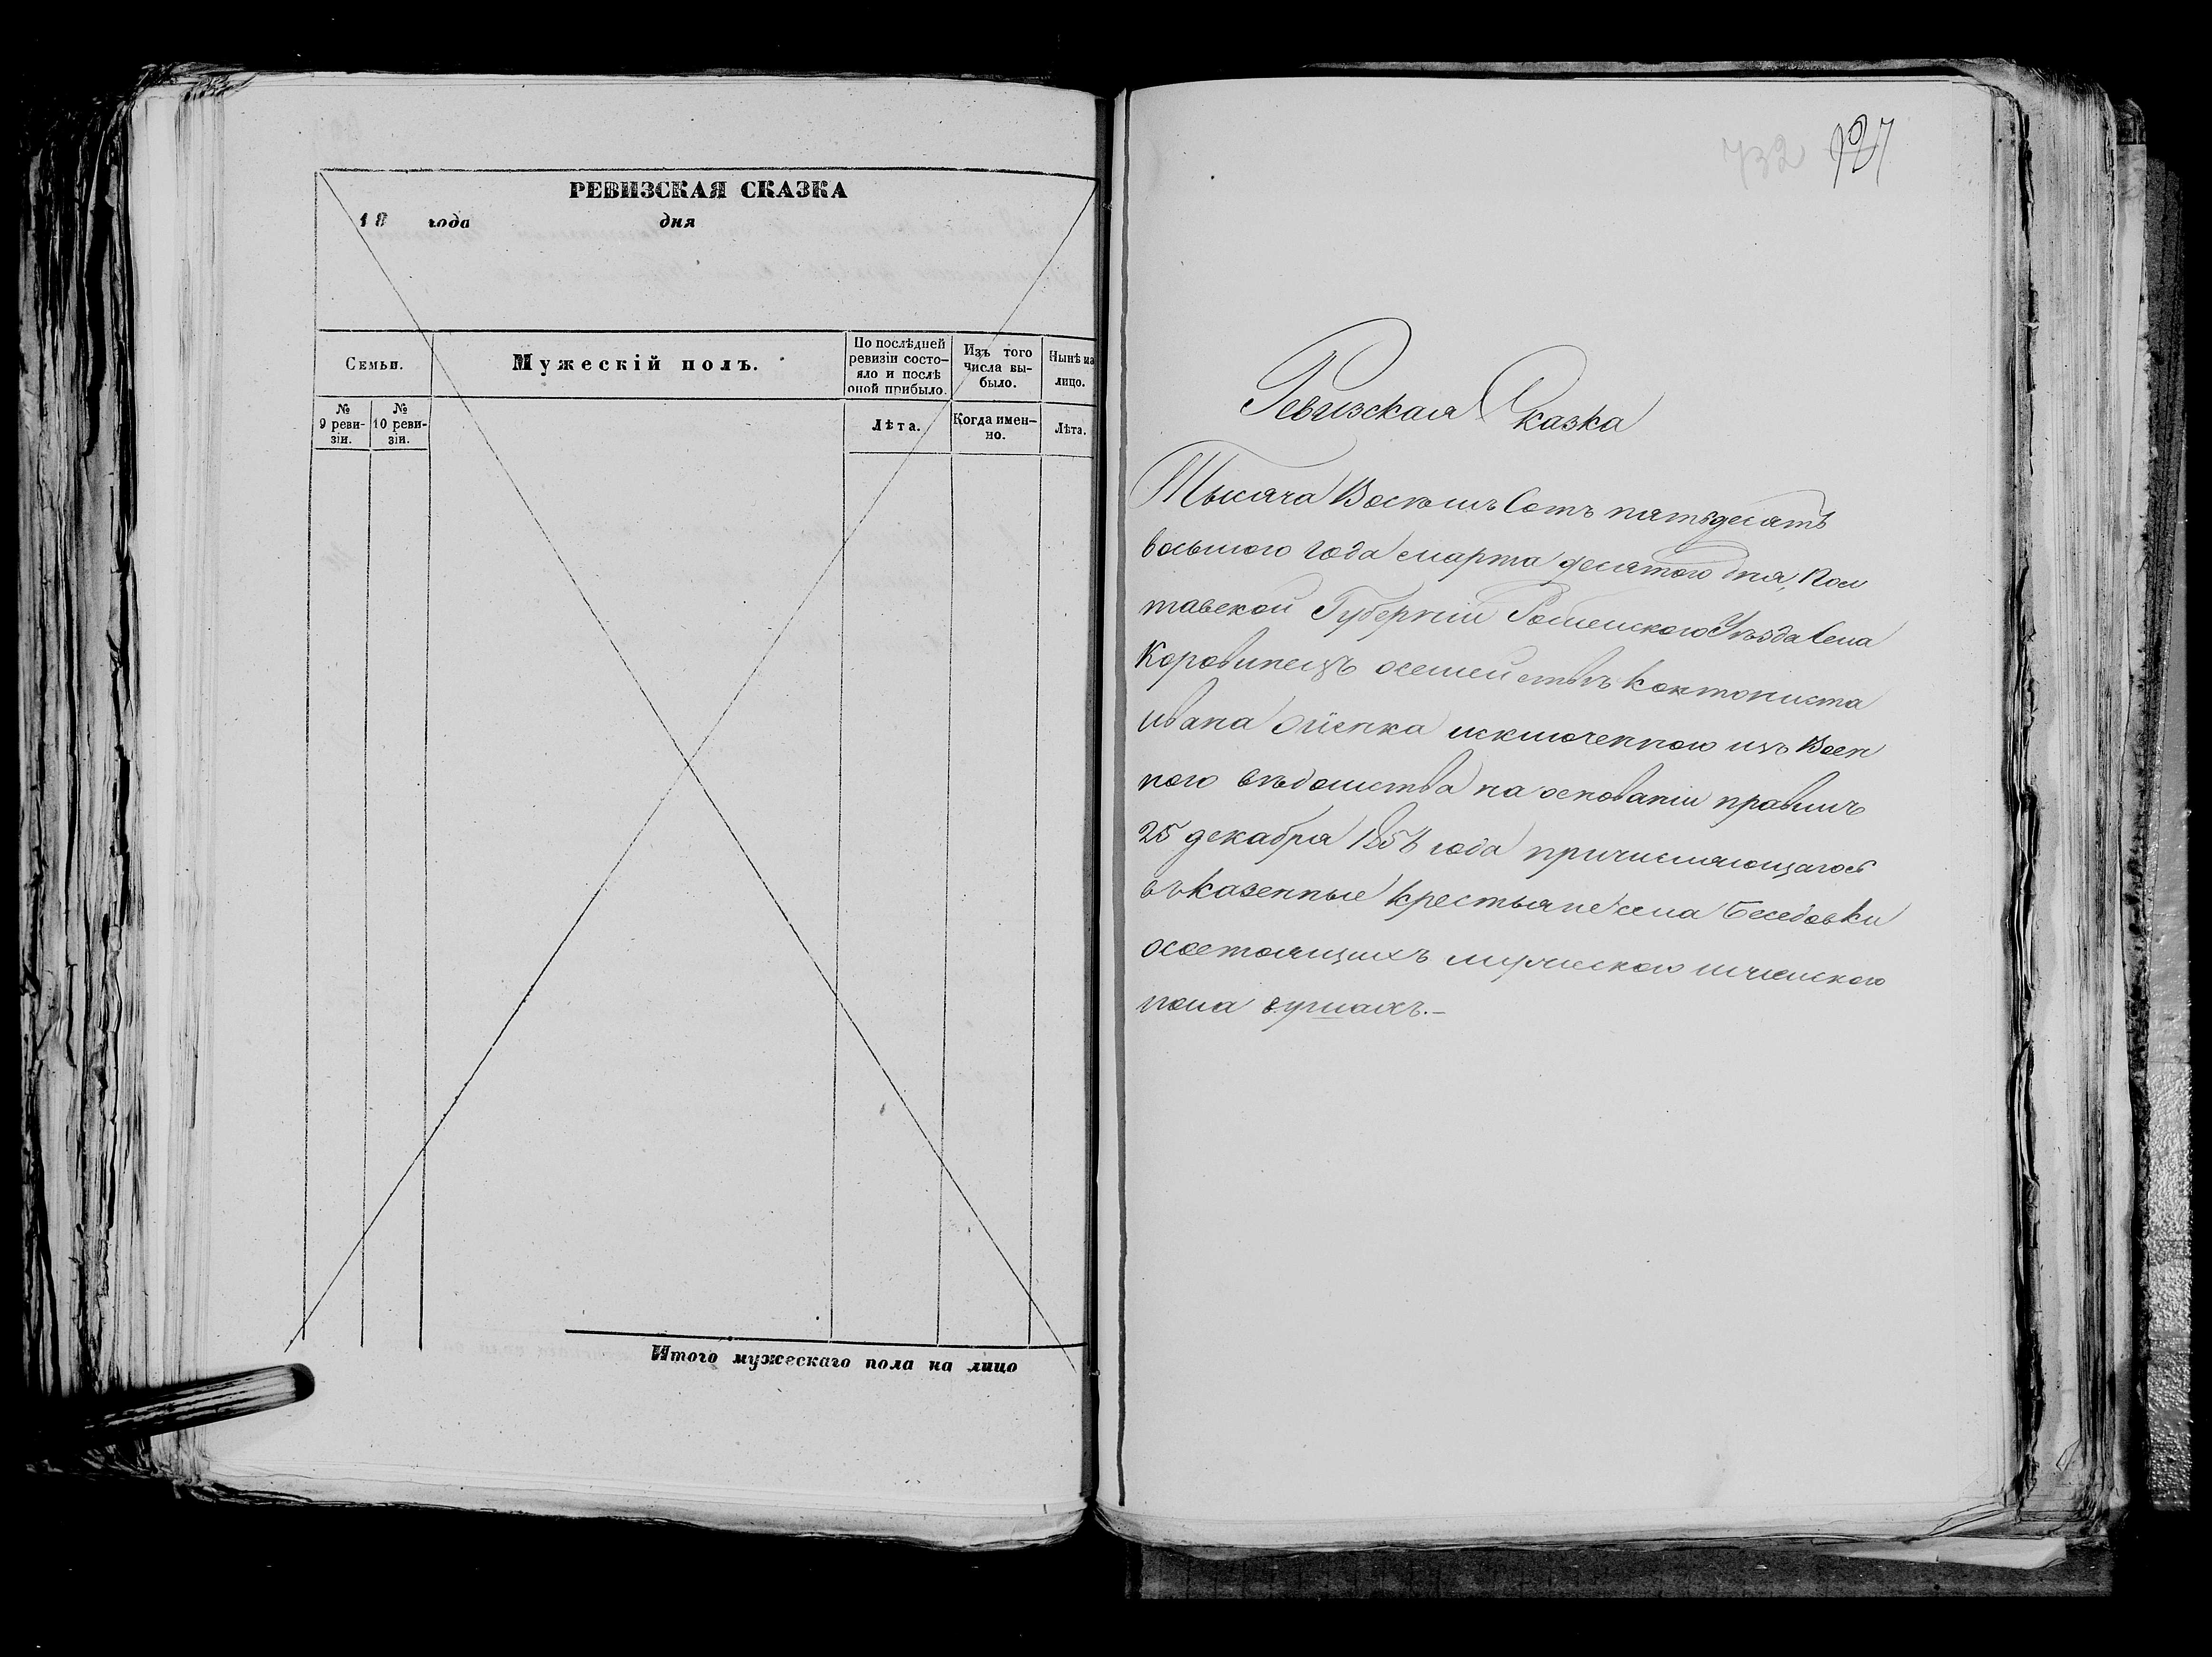 РЕВИЗСКАЯ СКАЗКА
18 года дня
Семьи.
Мужескій полъ.
По послѣдней ревизіи состо-
яло и послѣ оной прибыло.
Изъ того числа вы-
было.
Нынѣ на лицо.
№ 9 реви-
зіи.
№ 10 реви-
зіи.
Лѣта.
Когда имен-
но.
Лѣта.
Итого мужескаго пола на лицо
732 727
Ревизская Сказка
Тысяча Восемь Сотъ пятьдесятъ
восьмого года марта десятого дня, Пол
тавской Губерніи Роменского Уѣзда Села
Коровинецъ осемействѣ кантониста
ивана исключенного изъ Воен
ного вѣдомства на основаніи правилъ
25 декабря 1856 года причисляющагося
въ казенные крестьяне села Беседовки
осостоящихъ мужеского иженского
пола душахъ.—